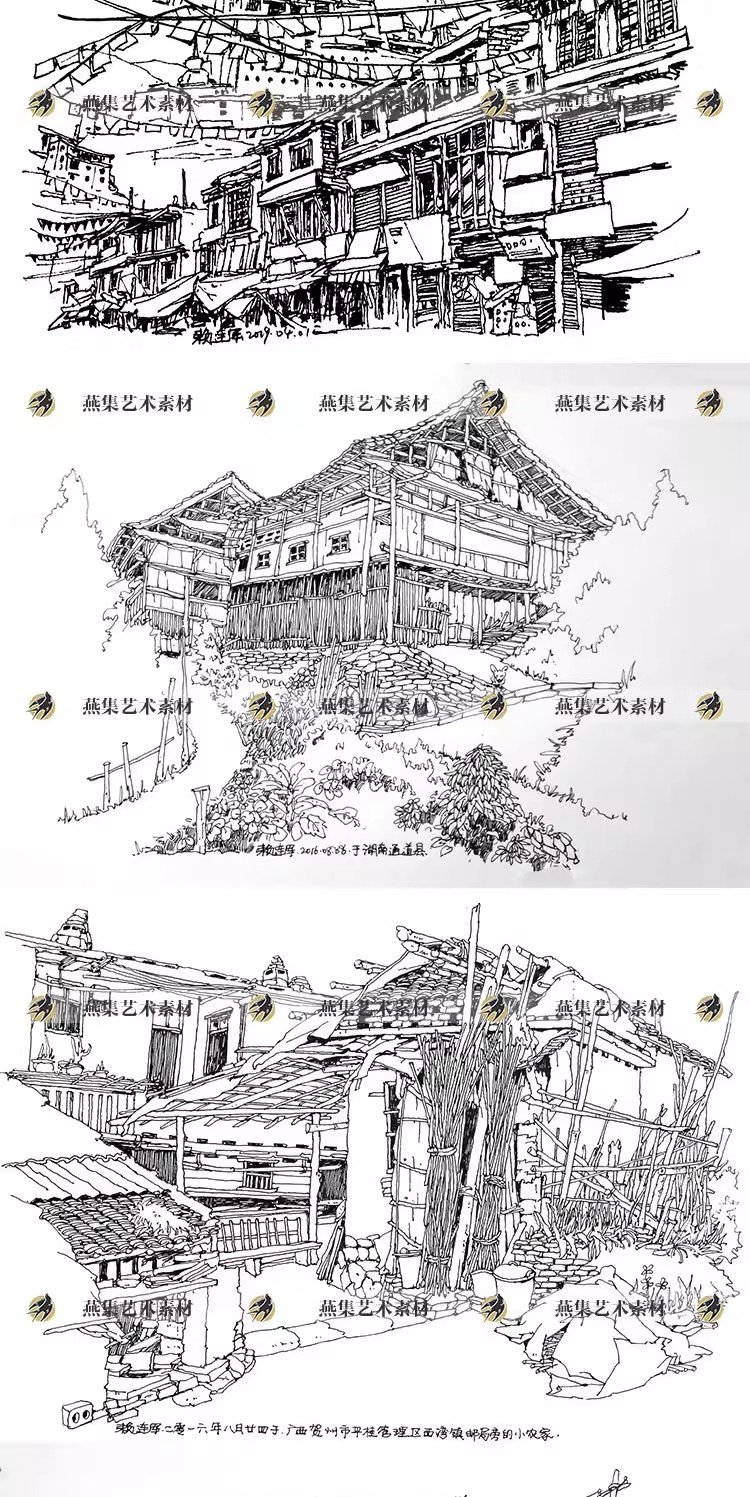 燕集艺术素材 燕集艺术素材 燕集艺术素材
赖连军 2019.04.01
燕集艺术素材 燕集艺术素材 燕集艺术素材
燕集艺术素材 燕集艺术素材 燕集艺术素材
2016.08.08.于湖南通道县
燕集艺术素材 燕集艺术素材 燕集艺术素材
燕集艺术素材 燕集艺术素材 燕集艺术素材
二零一六年八月廿四于.广西贺州市平桂管理区西湾镇邮局旁的小农家.